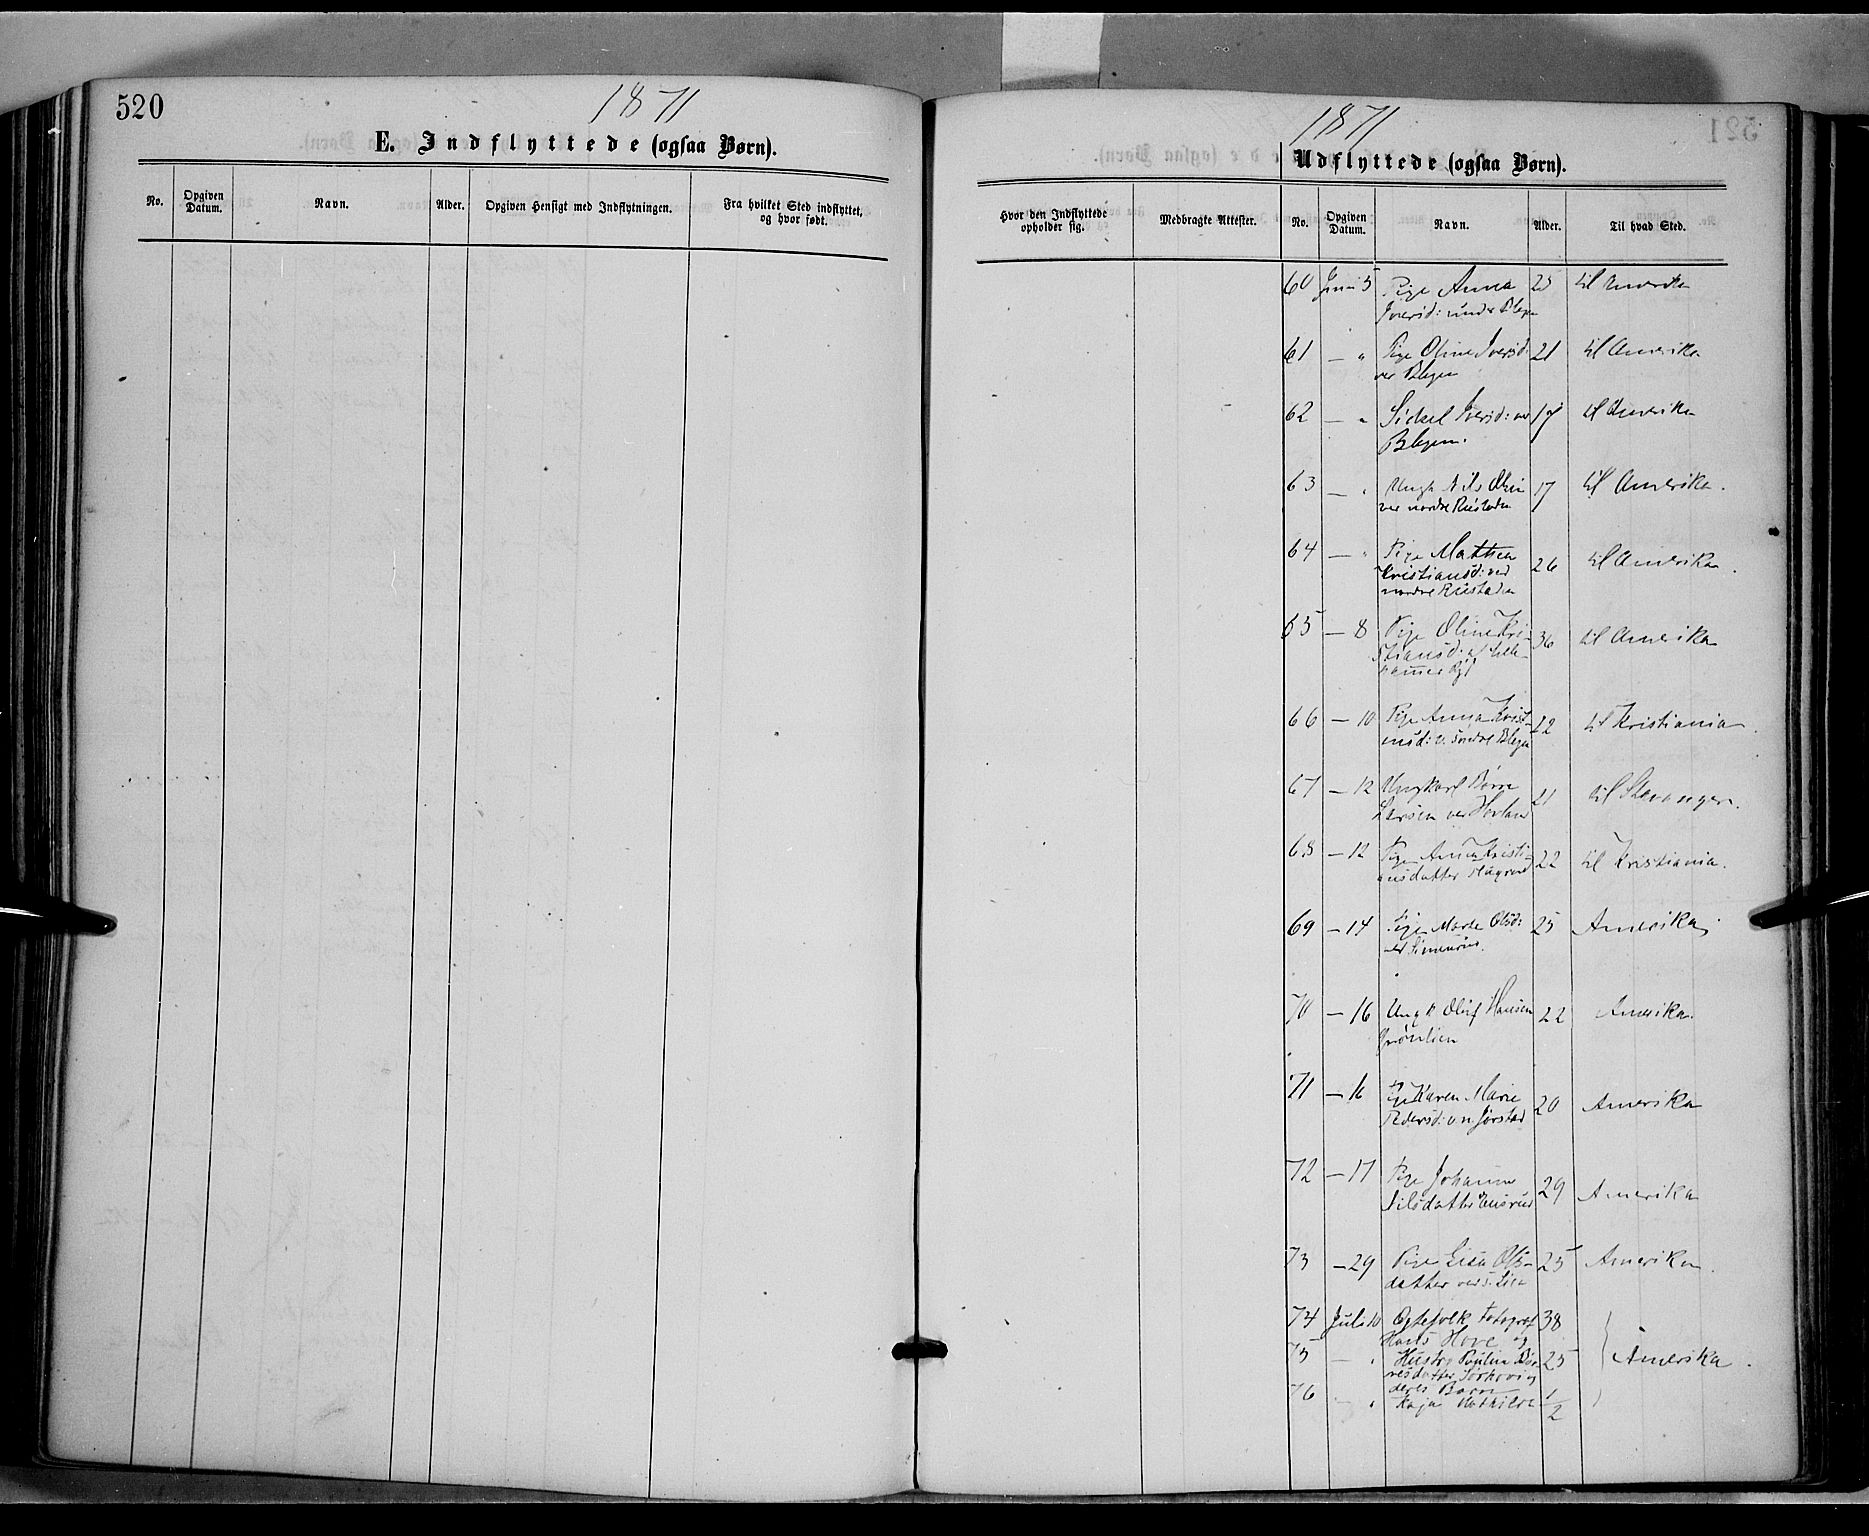 520
1871
E. Indflyttede (ogsaa Børn).
No.
Opgiven Datum.
Navn.
Alder.
Opgiven Hensigt med Indflytningen.
Fra hvilket Sted indflyttet, og hvor født.
1871
521
Udflyttede (ogsaa Børn).
Hvor den Indflyttede opholder sig.
Medbragte Attester.
No.
Opgiven Datum.
Navn.
Alder.
Til hvad Sted.
60 Juni 5 Pige Anna 25 til Amerika
Iversd: under Blegen
61 — " Pige Oline Iversd: 21 til Amerika
ved Blegen
62 — " Sidsel Iversd: ved 17 til Amerika
Blegen.
63 — " Ungk Nils Olsen 17 til Amerika.
ved nordre Rustaden
64 — " Pige Mathea 26 til Amerika.
Kristiansd: ved
nordre Rustaden
65 — 8 Pige Oline Kri- 36 til Amerika
stiansd: af Lille
hammer
66 — 10 Pige Anna Krist- 22 til Kristiania.
ensd: v. søndre Blegen
67 — 12 Ungkarl Børre 21 til Stavanger.
Larsen ved
68 — 12 Pige Anna Kristi- 22 til Kristiania.
ansdatter
69 — 14 Pige Marte Olsd: 25 Amerika.
ved
70 — 16 Ungk Oluf Hansen 22 Amerika.
Grønlien
71 — 16 Pge Karen Marie 20 Amerika
Pedersd: v. n. Jørstad
72 — 17 Pige Johanne 29 Amerika
Nilsdatter
73 — 29 Pige Lisa Ols- 25 Amerika.
datter ved s. Lien
74 Juli 10 Egtefolk Fotograf 38
Hans Hove og
75 — " Hustry Paulin Bør- 25 Amerika.
resdatter og
deres Barn
76 — " Kaja Mathilde 1/2